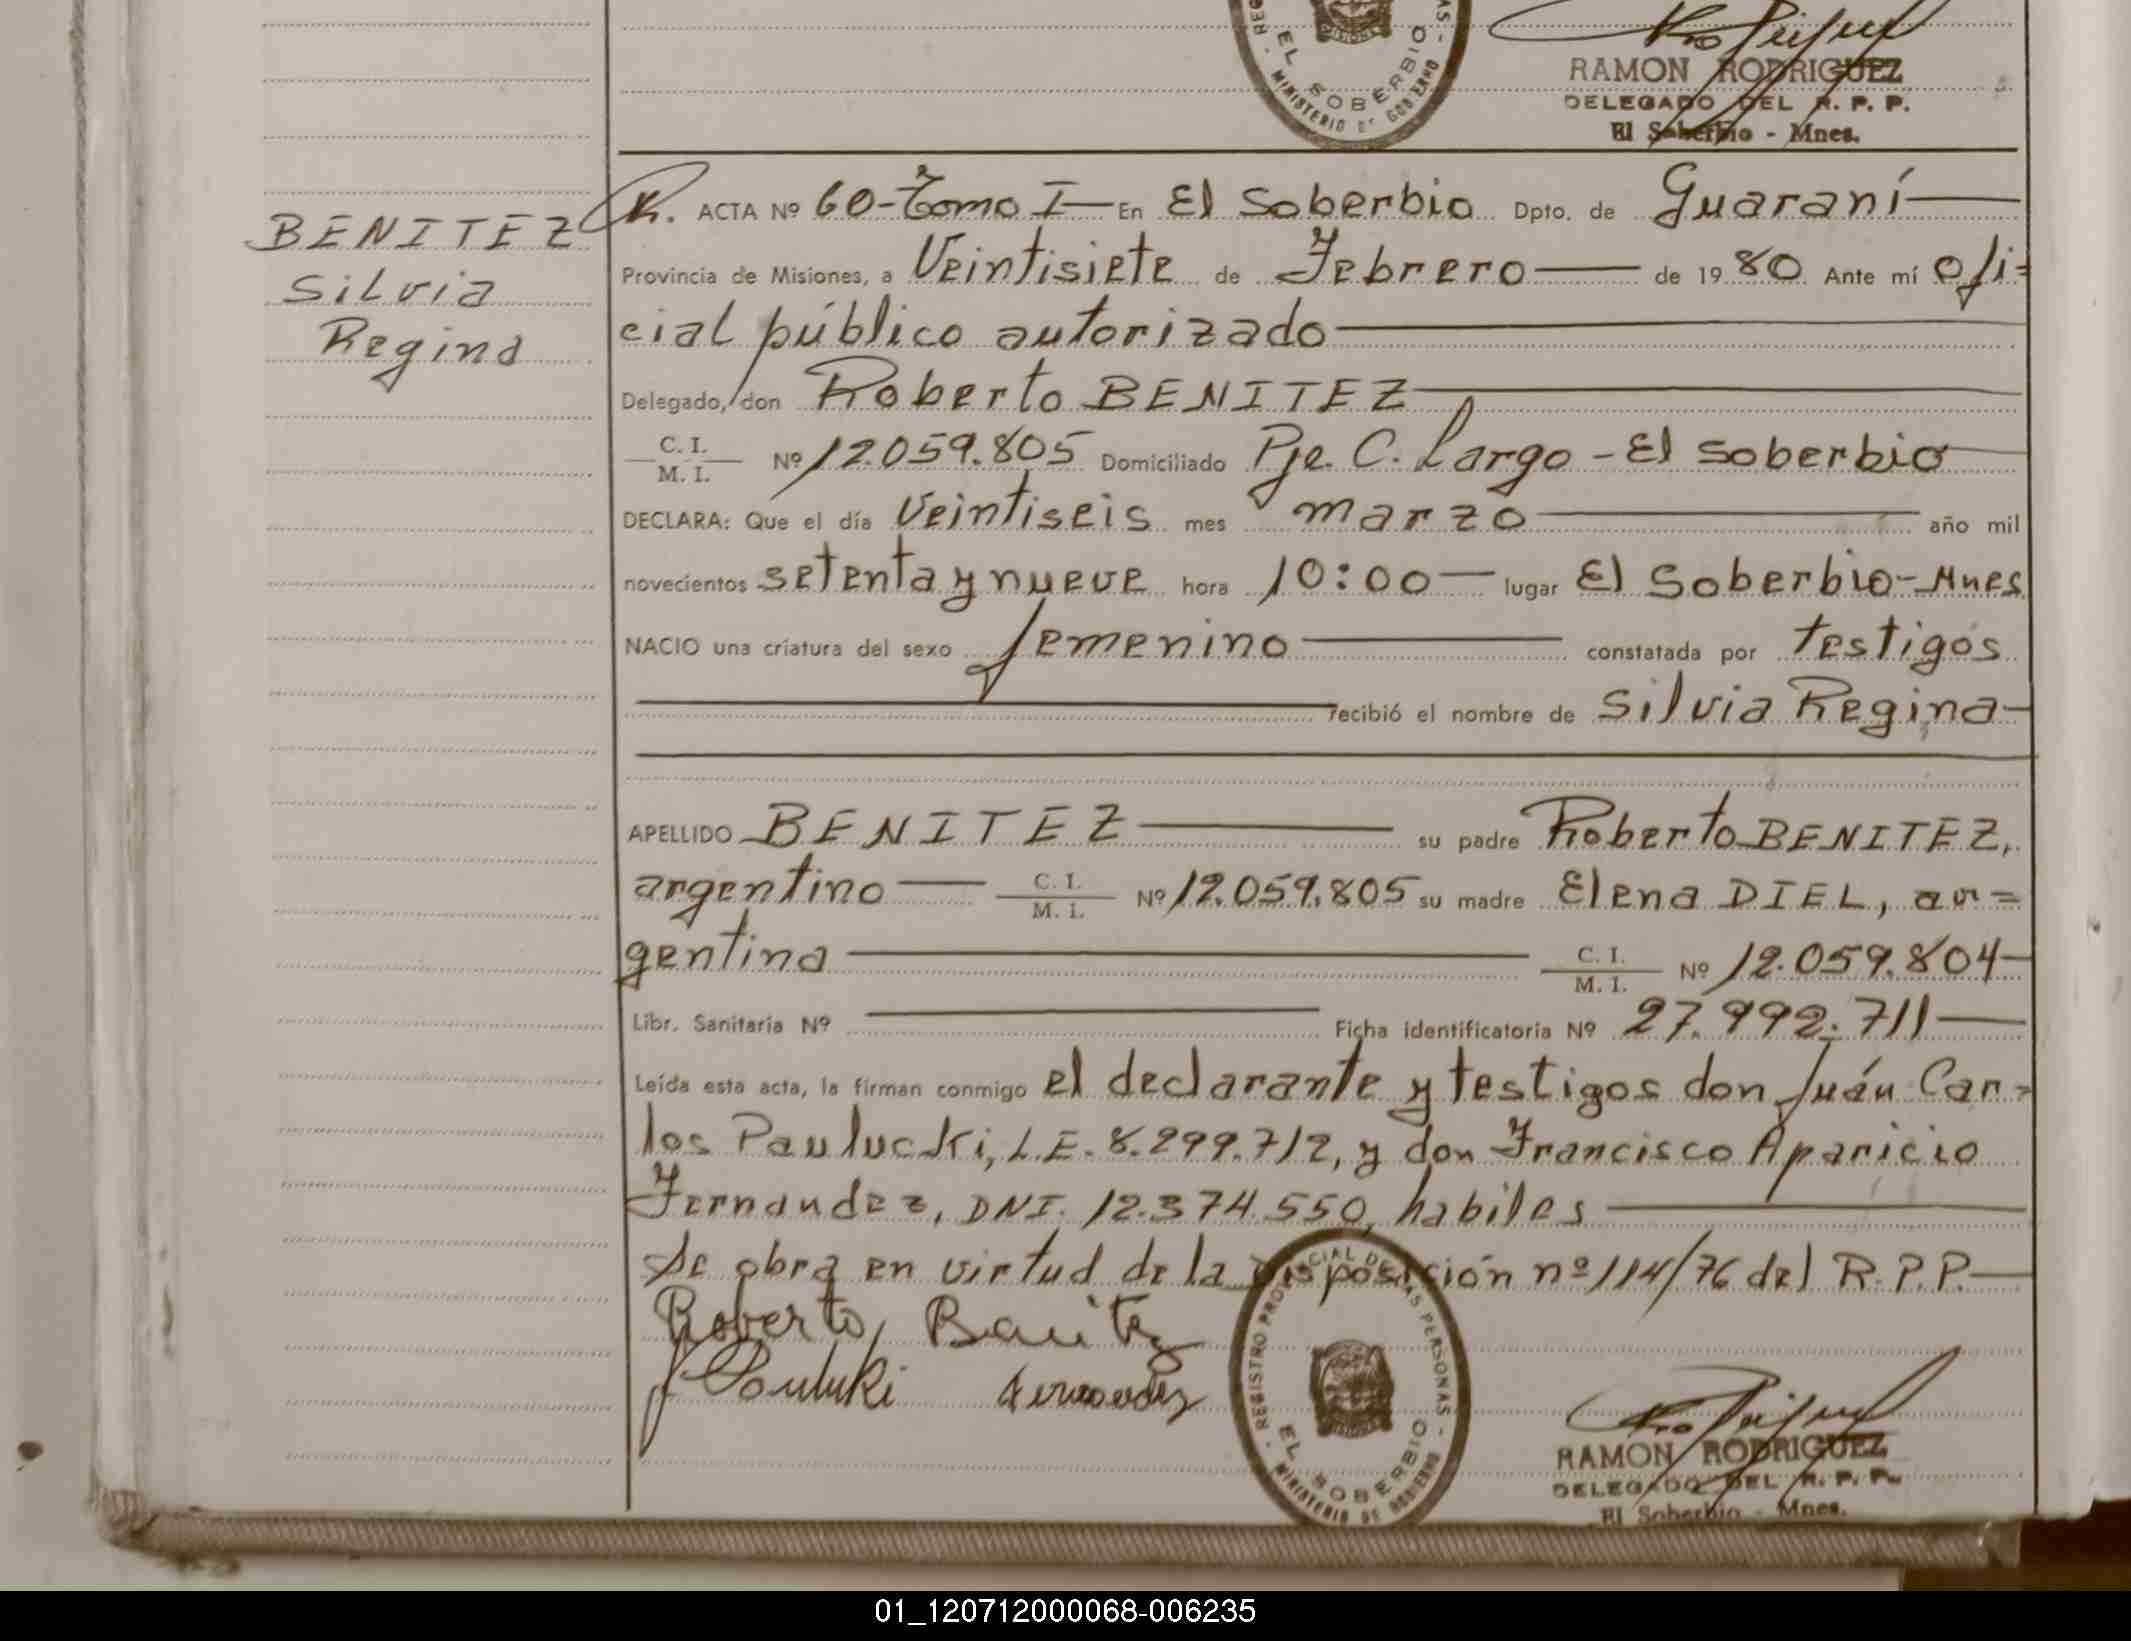 EL SOBERBIO
MINISTERIO DE GOBIERNO
RAMON RODRIGUEZ
DELEGADO DEL R. P. P.
El Soberbio - Mnes.
BENITEZ
Silvia
Regina
R. ACTA Nº 60-Tomo I— En El Soberbio Dpto. de Guaraní—
Provincia de Misiones, a Veintisiete de Febrero— de 1980. Ante mí ofi=
cial público autorizado—
Delegado, don Roberto BENITEZ—
C. I.
M. I. Nº 12.059.805 Domiciliado Pje. C. Largo - El Soberbio
DECLARA: Que el día Veintiseis mes marzo— año mil
novecientos setenta y nueve hora 10:00— lugar El Soberbio-Mnes
NACIO una criatura del sexo femenino— constatada por testigos
— recibió el nombre de Silvia Regina—
APELLIDO BENITEZ— su padre Roberto BENITEZ,
argentino— C. I.
M. I. Nº 12.059.805 su madre Elena DIEL, ar=
gentina— C. I.
M. I. Nº 12.059.804—
Libr. Sanitaria Nº — Ficha identificatoria Nº 27.992.711—
Leída esta acta, la firman conmigo el declarante y testigos don Juán Car=
los Paulucki, L.E. 8.299.712, y don Francisco Aparicio
Fernandez, DNI. 12.374.550, habiles—
Se obra en virtud de la Disposición nº 114/76 del R.P.P.—
Roberto Benitez
J Pauluki Fernandez
REGISTRO PROVINCIAL DE LAS PERSONAS
EL SOBERBIO
MINISTERIO DE GOBIERNO
RAMON RODRIGUEZ
DELEGADO DEL R. P. P.
El Soberbio - Mnes.
01_120712000068-006235